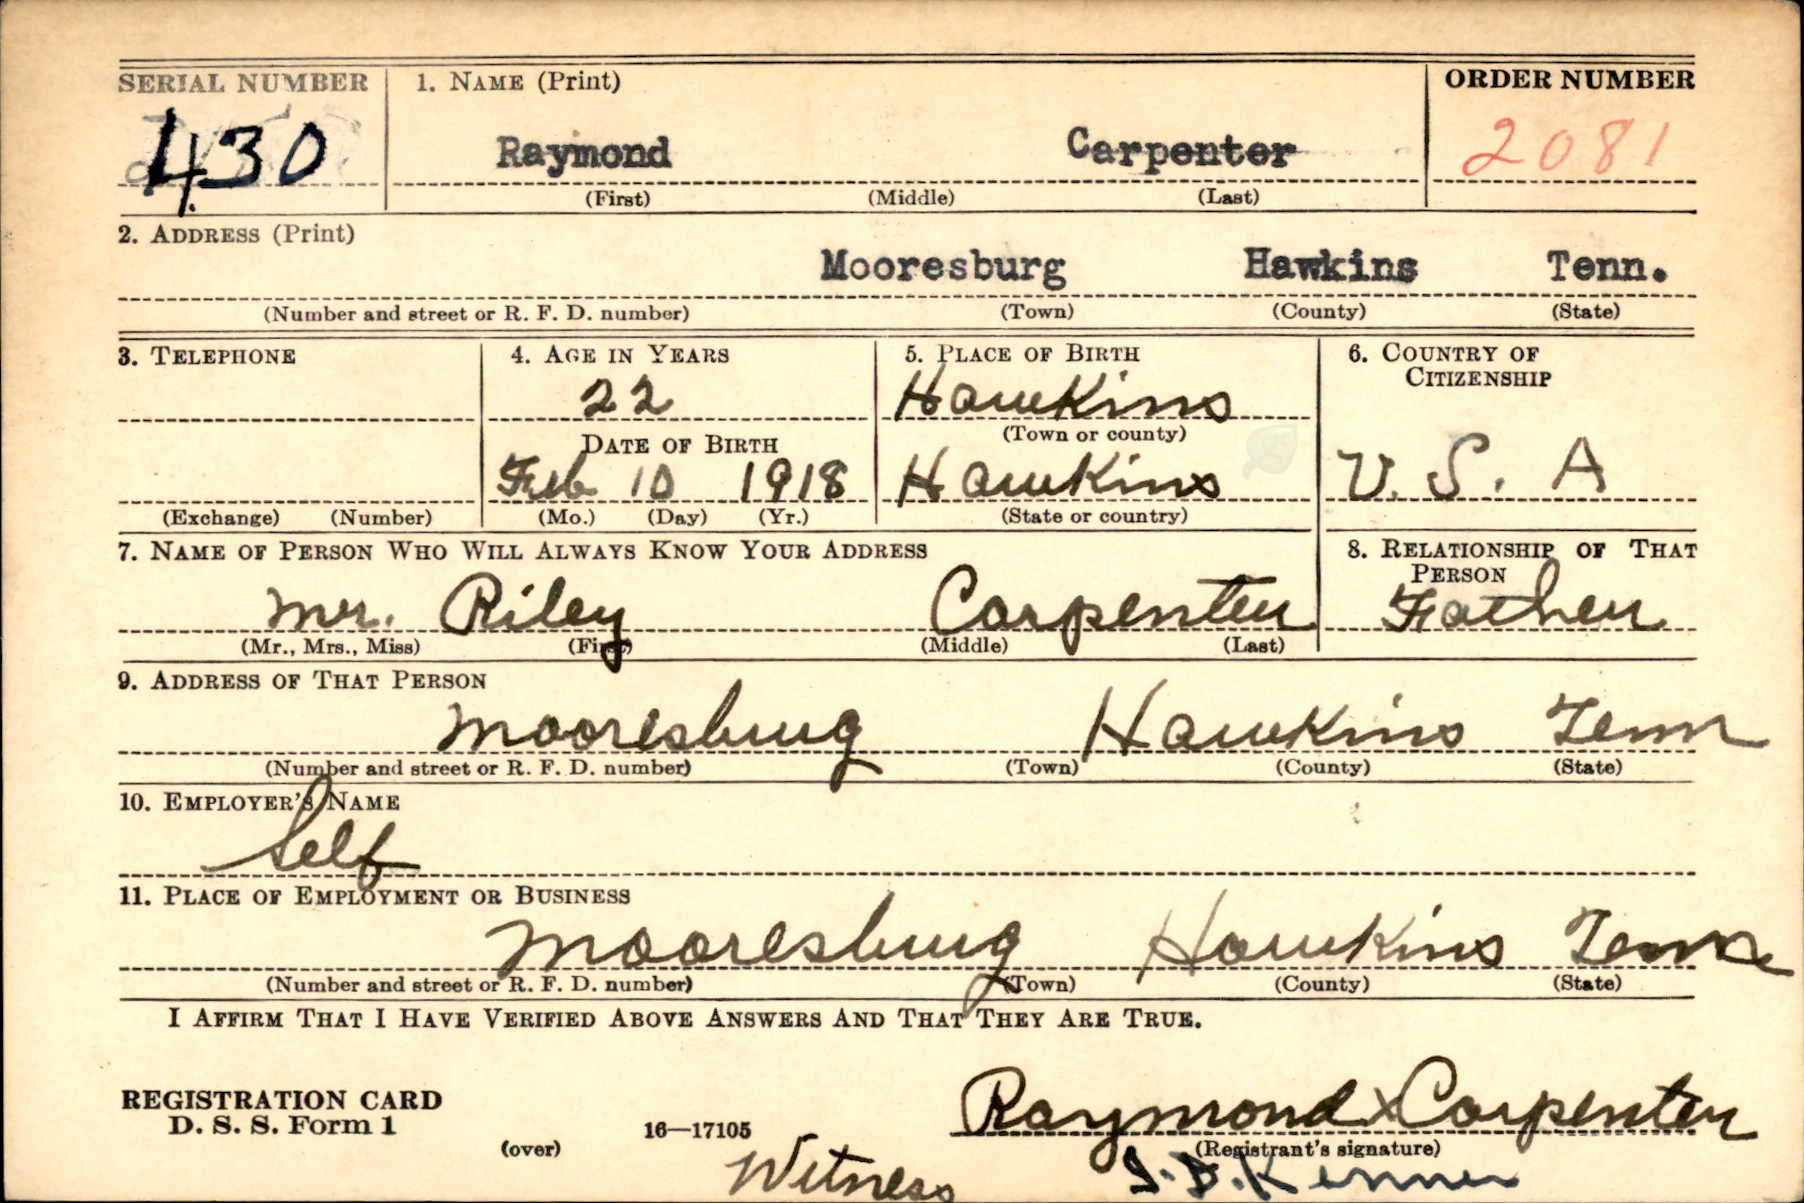 SERIAL NUMBER 1. NAME (Print) ORDER NUMBER
430 Raymond Carpenter 2081
(First) (Middle) (Last)
2. ADDRESS (Print)
Mooresburg Hawkins Tenn.
(Number and street or R. F. D. number) (Town) (County) (State)
3. TELEPHONE 4. AGE IN YEARS 5. PLACE OF BIRTH 6. COUNTRY OF
CITIZENSHIP
22 Hawkins
(Town or county)
DATE OF BIRTH
Feb 10 1918 Hawkins U. S. A
(Exchange) (Number) (Mo.) (Day) (Yr.) (State or country)
7. NAME OF PERSON WHO WILL ALWAYS KNOW YOUR ADDRESS 8. RELATIONSHIP OF THAT
PERSON
Mr. Riley Carpenter Father
(Mr., Mrs., Miss) (First) (Middle) (Last)
9. ADDRESS OF THAT PERSON
Mooresburg Hawkins Tenn
(Number and street or R. F. D. number) (Town) (County) (State)
10. EMPLOYER'S NAME
Self
11. PLACE OF EMPLOYMENT OR BUSINESS
Mooresburg Hawkins Tenn
(Number and street or R. F. D. number) (Town) (County) (State)
I AFFIRM THAT I HAVE VERIFIED ABOVE ANSWERS AND THAT THEY ARE TRUE.
REGISTRATION CARD Raymond X Carpenter
D. S. S. Form 1 16—17105
(over) (Registrant's signature)
Witness J. D. Kenner